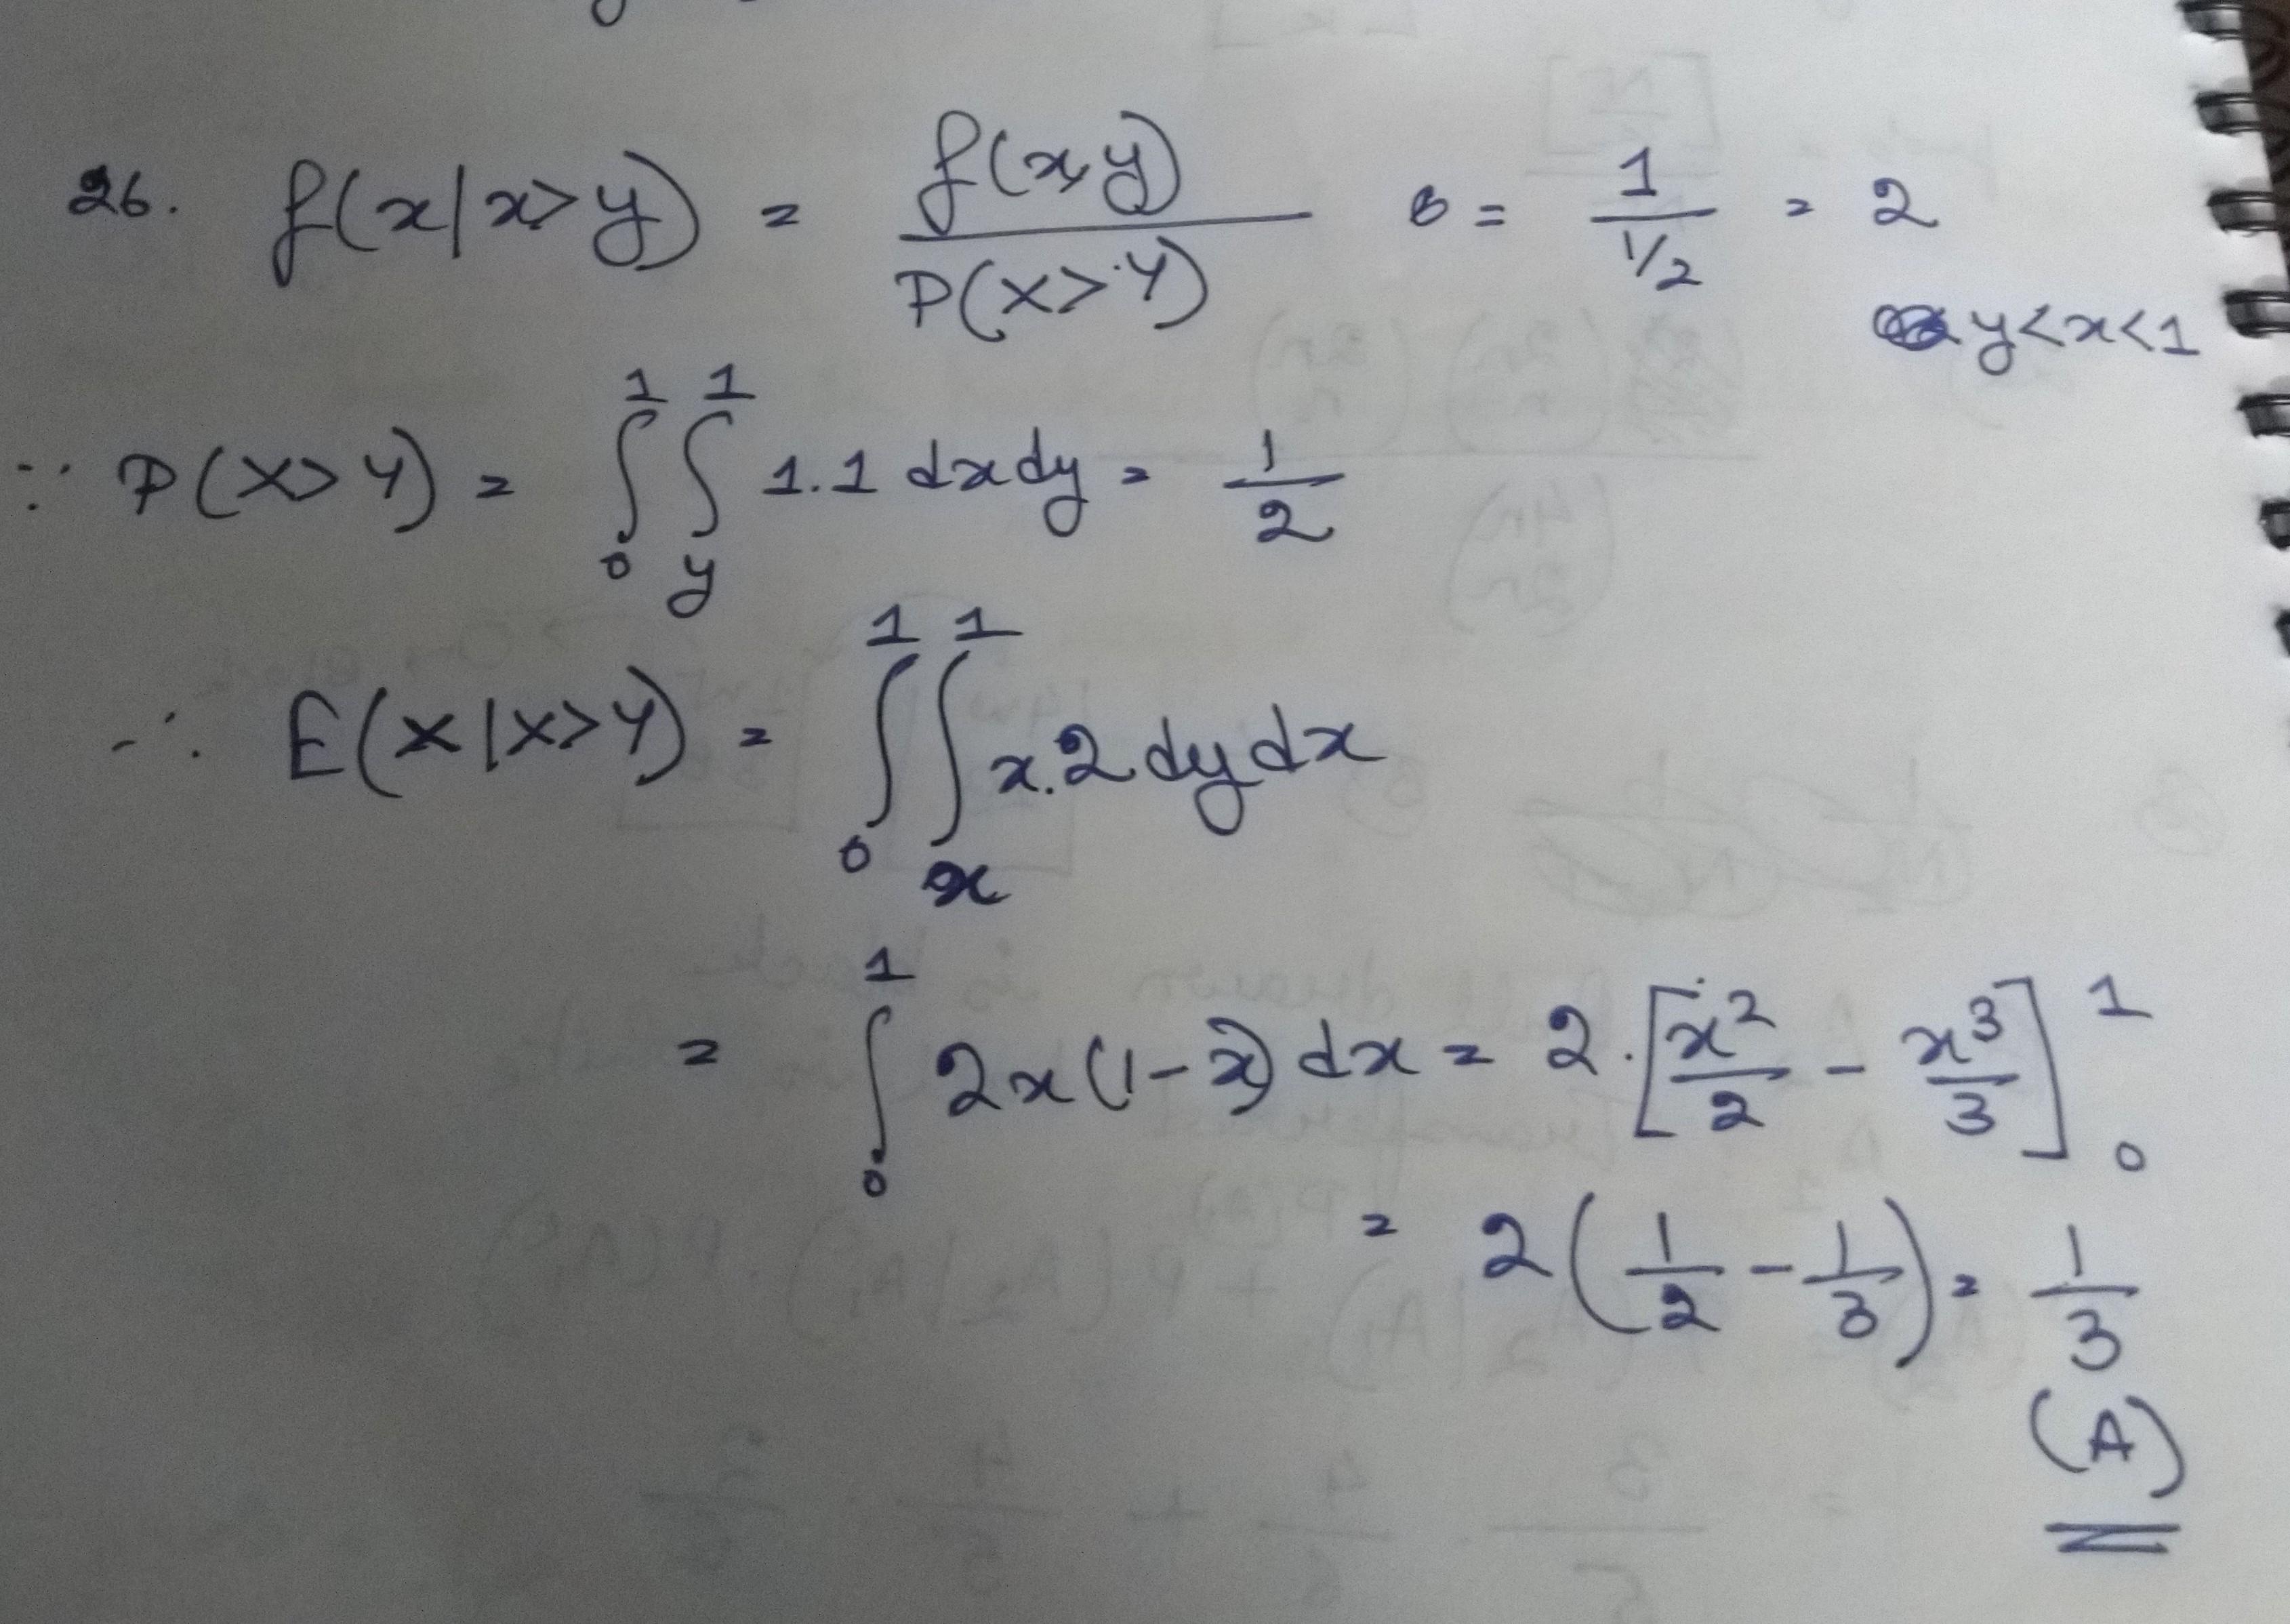 26. f(x|x>y) = f(x,y) / P(X>Y) = 1 / 1/2 = 2
y<x<1
∵ P(X>Y) = ∫₀¹ ∫_y¹ 1.1 dx dy = 1/2
∴ E(X|X>Y) = ∫₀¹ ∫_x¹ x.2 dy dx
= ∫₀¹ 2x(1-x) dx = 2.[x²/2 - x³/3]₀¹
= 2(1/2 - 1/3) = 1/3
(A)